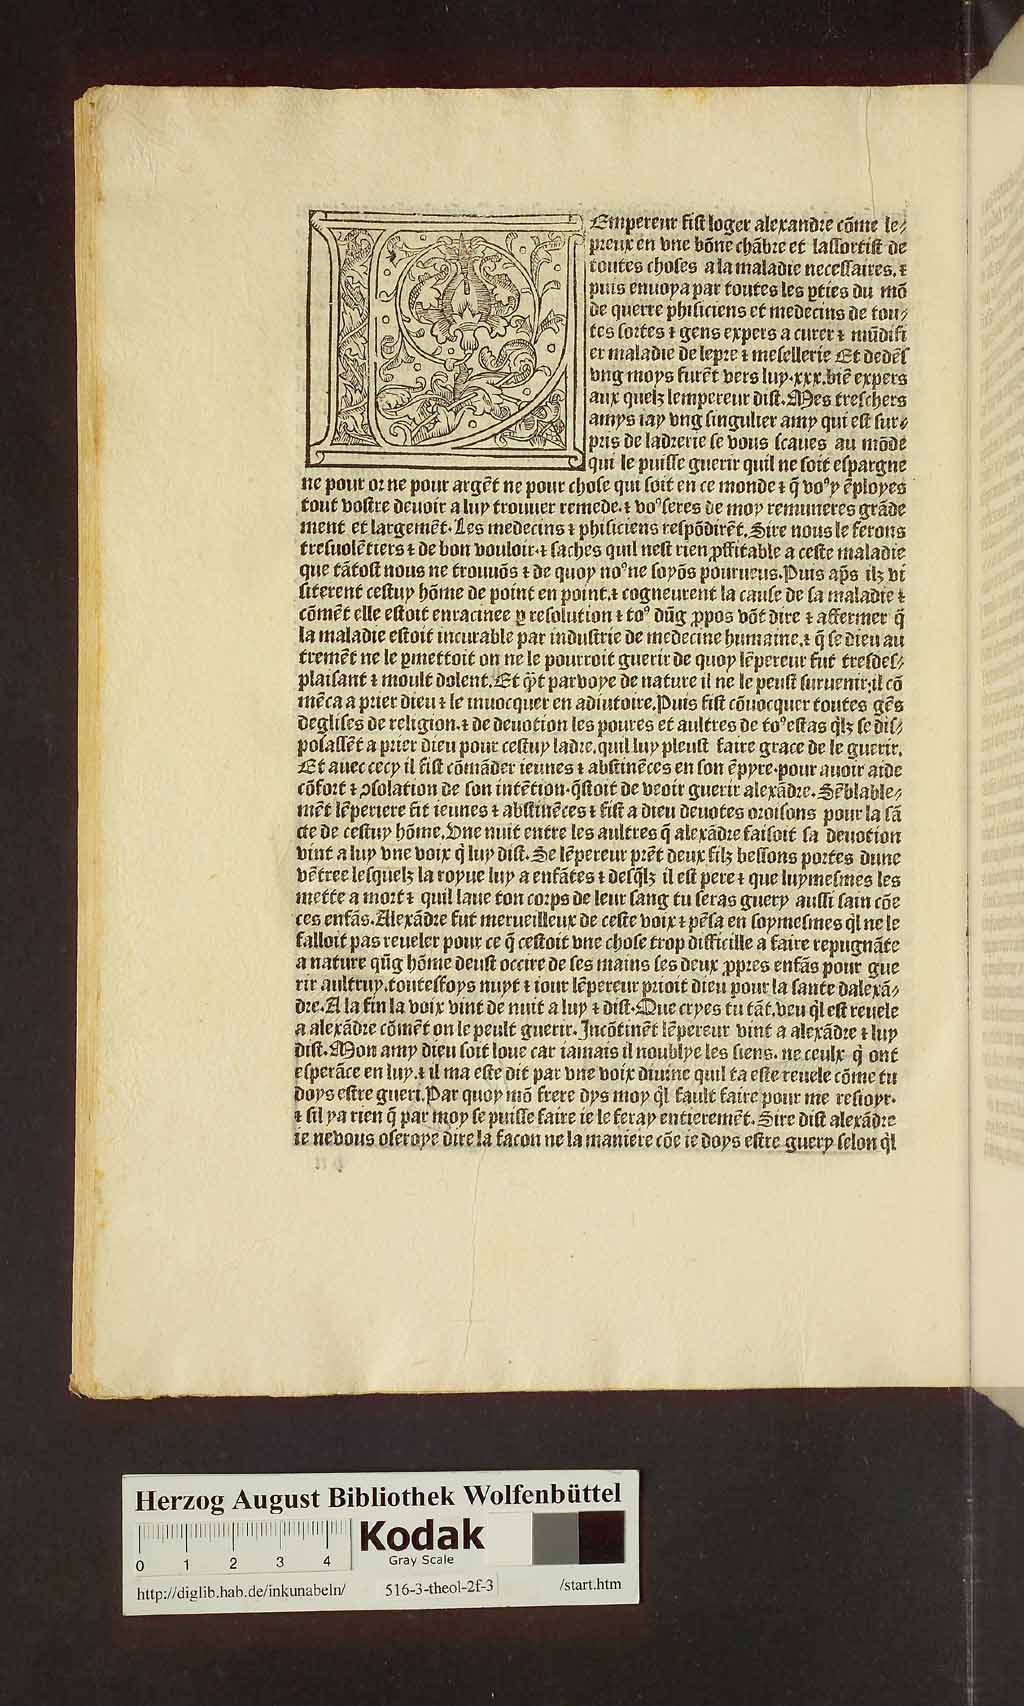 LEmpereur fist loger alexandre cōme le⸗
preux en vne bōne chābre et lassortist de
toutes choses a la maladie necessaires. ⁊
puis enuoya par toutes les ꝑties du mō
de querre phisiciens et medecins de tou⸗
tes sortes ⁊ gens expers a curer ⁊ mūdifi
er maladie de lepre ⁊ mesellerie Et dedēs
vng moys furēt vers luy.xxx.biē expers
aux quelz lempereur dist. Mes treschers
amys iay vng singulier amy qui est sur⸗
pris de ladrerie se vous scaues au mōde
qui le puisse guerir quil ne soit espargne
ne pour or ne pour argēt ne pour chose qui soit en ce monde ⁊ q̄ voꝰ y ēployes
tout vostre deuoir a luy trouuer remede. ⁊ voꝰ seres de moy remuneres grāde
ment et largemēt. Les medecins ⁊ phisiciens respōdirēt. Sire nous le ferons
tresuolētiers ⁊ de bon vouloir. ⁊ saches quil nest rien ꝓffitable a ceste maladie
que tātost nous ne trouuōs ⁊ de quoy noꝰ ne soyōs pourueus. Puis ap̄s ilz vi
siterent cestuy hōme de point en point. ⁊ cogneurent la cause de sa maladie ⁊
cōmēt elle estoit enracinee ꝑ resolution ⁊ toꝰ dūg ꝓpos vōt dire ⁊ affermer q̄
la maladie estoit incurable par industrie de medecine humaine. ⁊ q̄ se dieu au
tremēt ne le ꝑmettoit on ne le pourroit guerir de quoy lēpereur fut tresdes⸗
plaisant ⁊ moult dolent. Et q̄t par voye de nature il ne le peust suruenir; il cō
mēca a prier dieu ⁊ le inuocquer en adiutoire. Puis fist cōuocquer toutes gēs
deglises de religion. ⁊ de deuotion les poures et aultres de toꝰ estas q̄lz se dis⸗
posassēt a prier dieu pour cestuy ladre. quil luy pleust faire grace de le guerir.
Et auec cecy il fist cōmāder ieunes ⁊ abstinēces en son ēpyre. pour auoir aide
cōfort ⁊ ꝯsolation de son intētion. q̄stoit de veoir guerir alexādre. Sēblable⸗
mēt lēperiere fit ieunes ⁊ abstinēces ⁊ fist a dieu deuotes oroisons pour la sā
cte de cestuy hōme. Vne nuit entre les aultres q̄ alexādre faisoit sa deuotion
vint a luy vne voix q̄ luy dist. Se lēpereur prēt deux filz bessons portes dune
vētree lesquelz la royne luy a enfātes ⁊ desq̄lz il est pere ⁊ que luymesmes les
mette a mort ⁊ quil laue ton corps de leur sang tu seras guery aussi sain cōe
ces enfās. Alexādre fut merueilleux de ceste voix ⁊ pēsa en soymesmes q̄l ne le
falloit pas reueler pour ce q̄ cestoit vne chose trop difficille a faire repugnāte
a nature qūg hōme deust occire de ses mains ses deux ꝓpres enfās pour gue
rir aultruy. toutesfoys nuyt ⁊ iour lēpereur prioit dieu pour la sante dalexā⸗
dre. A la fin la voix vint de nuit a luy ⁊ dist. Que cryes tu tāt. veu q̄l est reuele
a alexādre cōmēt on le peult guerir. Incōtinēt lēpereur vint a alexādre ⁊ luy
dist. Mon amy dieu soit loue car iamais il noublye les siens. ne ceulx q̄ ont
esperāce en luy. ⁊ il ma este dit par vne voix diuine quil ta este reuele cōme tu
doys estre gueri. Par quoy mō frere dys moy q̄l fault faire pour me resioyr.
⁊ sil ya rien q̄ par moy se puisse faire ie le feray entieremēt. Sire dist alexādre
ie ne vous oseroye dire la facon ne la maniere cōe ie doys estre guery selon q̄l
Herzog August Bibliothek Wolfenbüttel
0 1 2 3 4
Kodak
Gray Scale
http://diglib.hab.de/inkunabeln/ 516-3-theol-2f-3 /start.htm